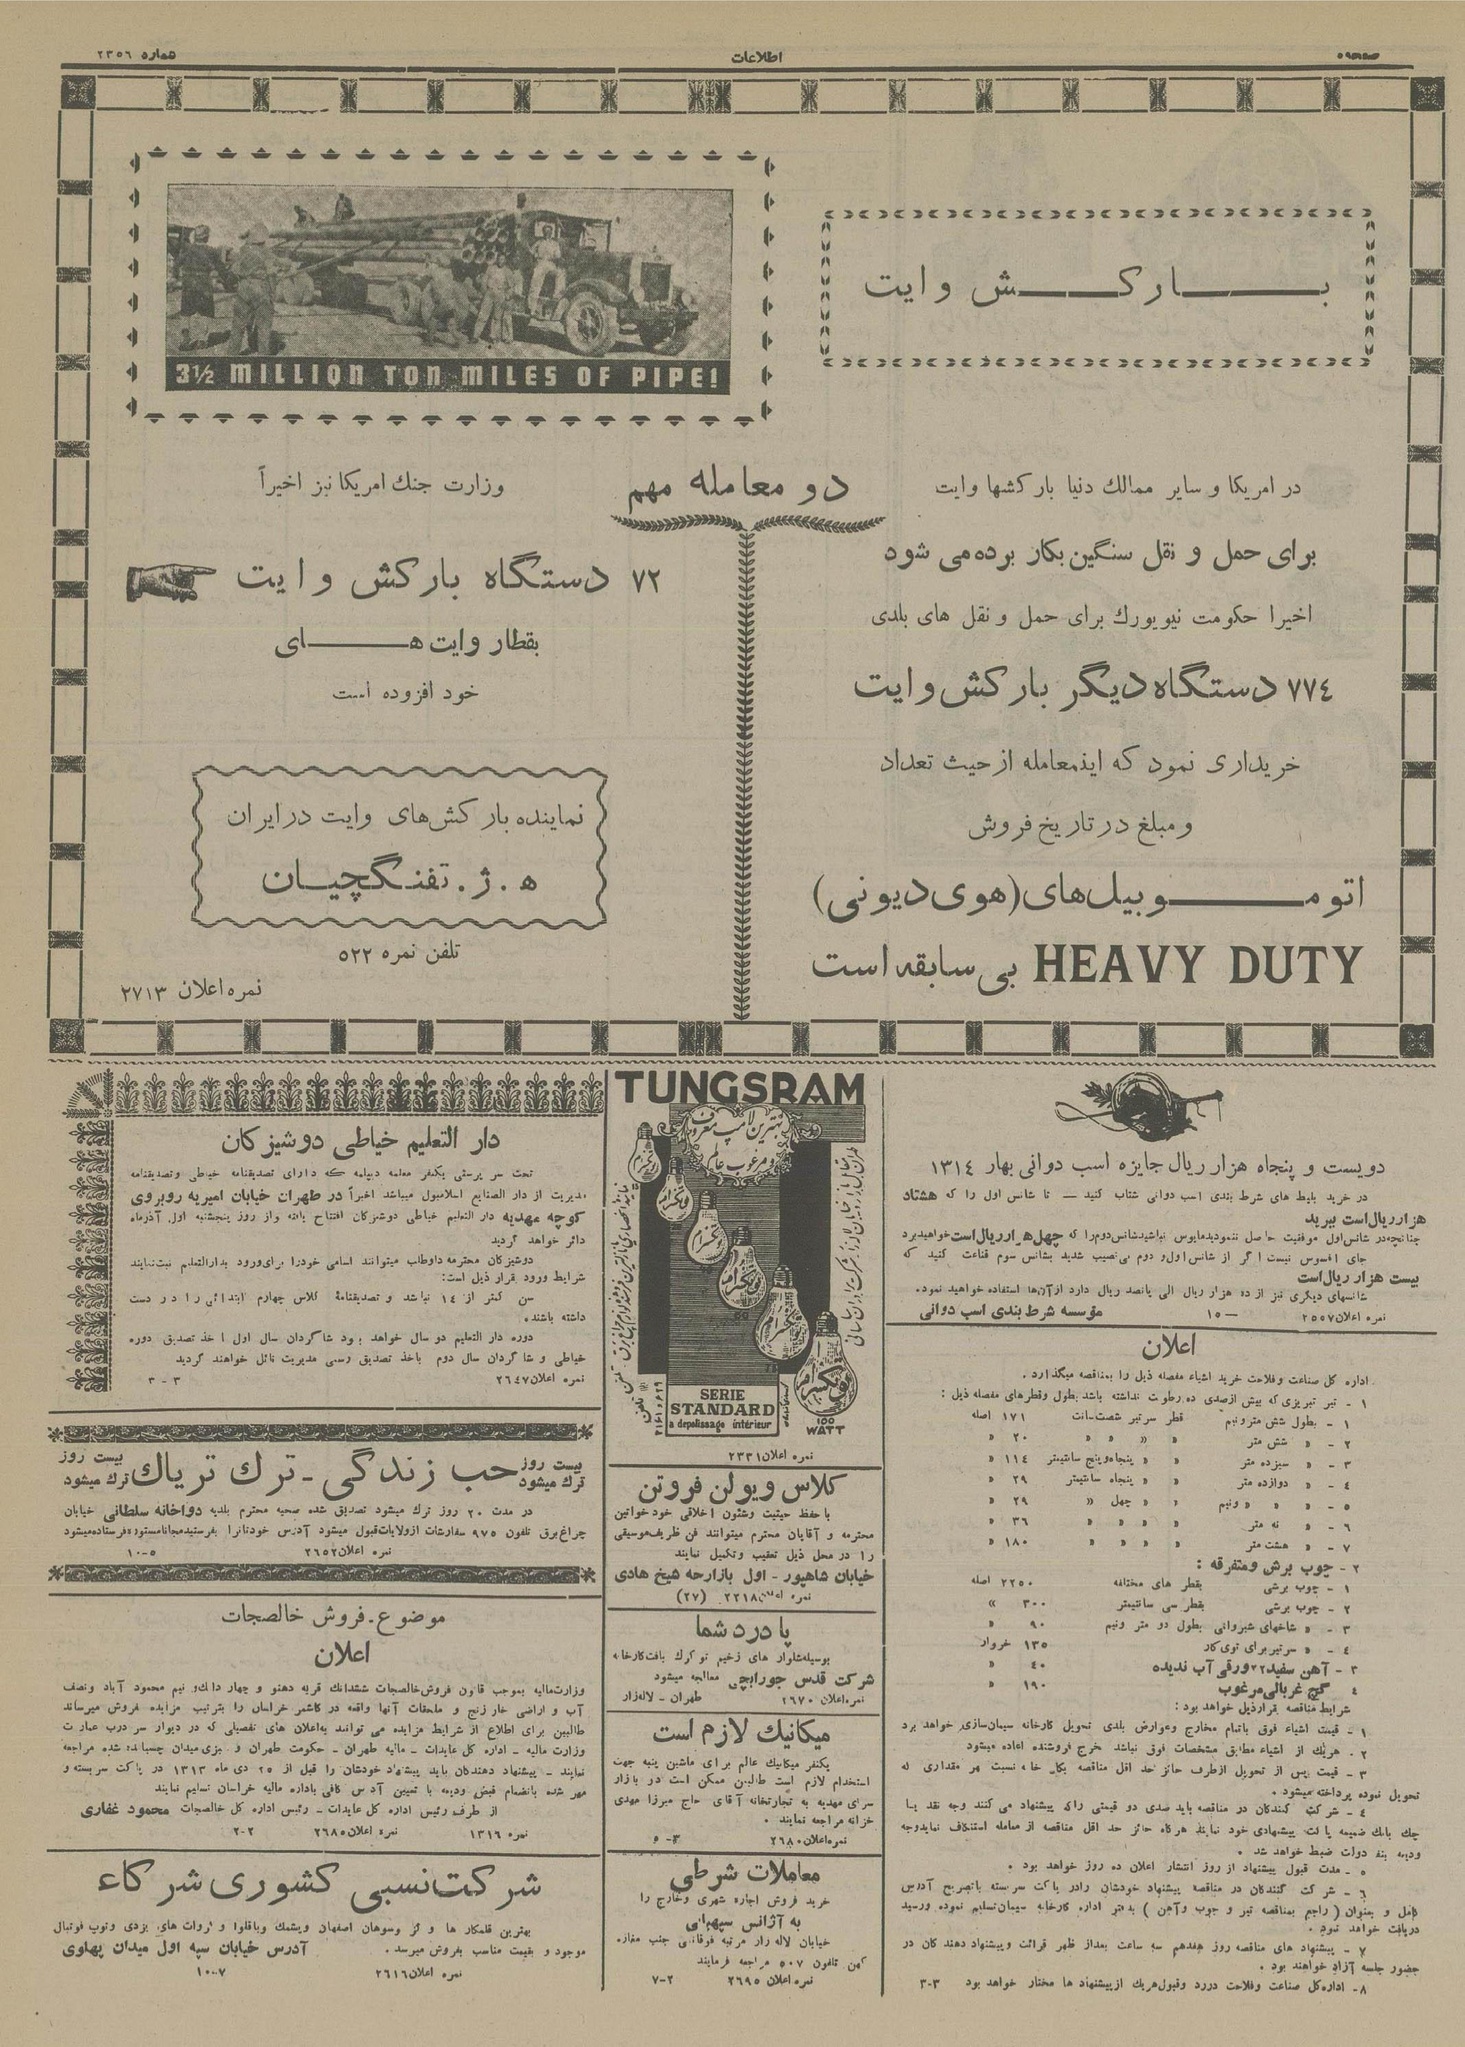 صفحه ٥
اطلاعات
شماره ٢٣٥٦
بارکش وایت
3½ MILLION TON MILES OF PIPE!
دو معامله مهم
در امریکا و سایر ممالك دنیا بارکشها وایت
برای حمل و نقل سنگین بکار برده می شود
اخیرا حکومت نیویورك برای حمل و نقل های بلدی
٧٧٤ دستگاه دیگر بارکش وایت
خریداری نمود که اینمعامله از حیث تعداد
و مبلغ در تاریخ فروش
اتوموبیل‌های (هوی دیوتی)
HEAVY DUTY بی سابقه است
وزارت جنك امریکا نیز اخیراً
٧٢ دستگاه بارکش وایت
بقطار وایت های
خود افزوده است
نماینده بارکش‌های وایت در ایران
ه . ژ . تفنگچیان
تلفن نمره ٥٢٢
نمره اعلان ٢٧١٣
دویست و پنجاه هزار ریال جایزه اسب دوانی بهار ١٣١٤
در خرید بلیط های شرط بندی اسب دوانی شتاب کنید — تا شانس اول را که هشتاد
هزار ریال است ببرید
چنانچه در شانس اول موفقیت حاصل ننمودید مایوس نباشید شانس دوم را که چهل هزار ریال است خواهید برد
جای افسوس نیست اگر از شانس اول و دوم بی نصیب شدید بشانس سوم قناعت کنید که
بیست هزار ریال است
شانسهای دیگری نیز از ده هزار ریال الی پانصد ریال دارد از آن‌ها استفاده خواهید نمود.
نمره اعلان ٢٥٥٧ — ١٥ مؤسسه شرط بندی اسب دوانی
اعلان
اداره کل صناعت و فلاحت خرید اشیاء مفصله ذیل را بمناقصه میگذارد .
١ - تیر تبریزی که بیش از صدی ده رطوبت نداشته باشد بطول و قطرهای مفصله ذیل :
١ - بطول شش متر و نیم قطر سر تیر شصت سانت ١٧١ اصله
٢ - « شش متر « « « ٢٠ «
٣ - « سیزده متر « « پنجاه و پنج سانتیمتر ١١٤ «
٤ - « دوازده متر « « پنجاه سانتیمتر ٢٩ «
٥ - « « « ونیم « « چهل « ٢٩ «
٦ - « نه متر « « « « ٣٦ «
٧ - « هشت متر « « « « ١٨٠ «
٢ - چوب برش و متفرقه :
١ - چوب برشی بقطر های مختلفه ٢٢٥٠ اصله
٢ - چوب برشی بقطر سی سانتیمتر ٣٠٠ «
٣ - « شاخهای شیروانی بطول دو متر و نیم ٩٠ «
٤ - « سر تیر برای توی کار ١٣٥ خروار
٣ - آهن سفید ٢٢ ورقی آب ندیده ٤٠ «
٤ گچ غربالی مرغوب ١٩٠ «
شرایط مناقصه بقرار ذیل خواهد بود :
١ - قیمت اشیاء فوق باتمام مخارج و عوارض بلدی تحویل کارخانه سیمان سازی خواهد بود
٢ . هریك از اشیاء مطابق مشخصات فوق نباشد خرج فروشنده اعاده میشود
٣ - قیمت پس از تحویل از طرف حائز حد اقل مناقصه بکار خانه نسبت بهر مقداری که
تحویل نموده پرداخته میشود .
٤ - شرکت کنندگان در مناقصه باید صدی دو قیمتی را که پیشنهاد می کنند وجه نقد یا
چك بانك ضمیمه پاکت پیشنهادی خود نمایند هرگاه حائز حد اقل مناقصه از معامله استنکاف نماید وجه
ودیعه بنفع دولت ضبط خواهد شد .
٥ - مدت قبول پیشنهاد از روز انتشار اعلان ده روز خواهد بود .
٦ - شرکت کنندگان در مناقصه پیشنهاد خودشان را در پاکت سربسته با تصریح آدرس
کامل و بعنوان ( راجع بمناقصه تیر و چوب و آهن ) بدفتر اداره کارخانه سیمان تسلیم نموده و رسید
دریافت خواهد نمود .
٧ - پیشنهاد های مناقصه روز هفدهم سه ساعت بعد از ظهر قرائت و پیشنهاد دهندگان در
حضور جلسه آزاد خواهند بود .
٨ - اداره کل صناعت و فلاحت در رد و قبول هریك از پیشنهاد ها مختار خواهد بود ٣-٣
TUNGSRAM
بهترین لامپ معروف
و مرغوب عالم
تونگسرام
تونگسرام
تونگسرام
تونگسرام
تونگسرام
تونگسرام
SERIE
STANDARD
a depolissage intérieur
100
WATT
نمره اعلان ٢٣٣١
کلاس ویولن فروتن
با حفظ حیثیت و شئون اخلاقی خود خواتین
محترمه و آقایان محترم میتوانند فن ظریف موسیقی
را در محل ذیل تعقیب و تکمیل نمایند
خیابان شاهپور - اول بازارچه شیخ هادی
نمره اعلان ٢٢١٨ (٢٧)
پا درد شما
بوسیله شلوار های زخیم تو کرك بافت کارخانه
شرکت قدس جورابچی معالجه میشود
نمره اعلان ٢٦٧٠ طهران - لاله زار
میکانیك لازم است
یکنفر میکانیك عالم برای ماشین پنبه جهت
استخدام لازم است طالبین ممکن است در بازار
سرای مهدیه به تجارتخانه آقای حاج میرزا مهدی
خزانه مراجعه نمایند .
نمره اعلان ٢٦٨٠ ٣-٥
معاملات شرطی
خرید فروش اجاره شهری و خارج را
به آژانس سپهرائی
خیابان لاله زار مرتبه فوقانی جنب مغازه
کهن تلفون ٥٠٧ مراجعه فرمایند
نمره اعلان ٢٦٩٥ ٢-٧
دار التعلیم خیاطی دوشیزگان
تحت سر پرستی یکنفر معلمه دیپلمه که دارای تصدیقنامه خیاطی و تصدیقنامه
مدیریت از دار الصنایع اسلامبول میباشد اخیراً در طهران خیابان امیریه روبروی
کوچه مهدیه دار التعلیم خیاطی دوشیزگان افتتاح یافته و از روز پنجشنبه اول آذرماه
دائر خواهد گردید
دوشیزگان محترمه داوطلب میتوانند اسامی خود را برای ورود بدار التعلیم ثبت نمایند
شرایط ورود بقرار ذیل است:
سن کمتر از ١٤ نباشد و تصدیقنامهٔ کلاس چهارم ابتدائی را در دست
داشته باشند.
دوره دار التعلیم دو سال خواهد بود شاگردان سال اول اخذ تصدیق دوره
خیاطی و شاگردان سال دوم باخذ تصدیق رسمی مدیریت نائل خواهند گردید
نمره اعلان ٢٦٤٧ ٣-٣
بیست روز ترك میشود حب زندگی - ترك تریاك بیست روز ترك میشود
در مدت ٢٠ روز ترك میشود تصدیق شده صحیه محترم بلدیه دواخانه سلطانی خیابان
چراغ برق تلفون ٩٧٥ سفارشات از ولایات قبول میشود آدرس خودتانرا بفرستید مجانا مستوره فرستاده میشود
نمره اعلان ٢٦٥٢ ٥-١٠
موضوع - فروش خالصجات
اعلان
وزارت مالیه بموجب قانون فروش خالصجات ششدانك قریه دهنو و چهار دانك و نیم محمود آباد و نصف
آب و اراضی خارزنج و ملحقات آنها واقعه در کاشمر خراسان را بترتیب مزایده فروش میرساند
طالبین برای اطلاع از شرایط مزایده می توانند به اعلان های تفصیلی که در دیوار سر درب عمارت
وزارت مالیه - اداره کل عایدات - مالیه طهران - حکومت طهران و سبزی میدان چسبانده شده مراجعه
نمایند - پیشنهاد دهندگان باید پیشنهاد خودشان را قبل از ٢٥ دی ماه ١٣١٣ در پاکت سربسته و
مهر شده بانضمام قبض ودیعه با تعیین آدرس کافی باداره مالیه خراسان تسلیم نمایند
از طرف رئیس اداره کل عایدات - رئیس اداره کل خالصجات محمود غفاری
نمره ١٣١٦ نمره اعلان ٢٦٨٥ ٢-٢
شرکت نسبی کشوری شرکاء
بهترین قلمکار ها و گز و سوهان اصفهان و پشمك و باقلوا و نروات های یزدی و توپ فوتبال
موجود و بقیمت مناسب بفروش میرسد . آدرس خیابان سپه اول میدان پهلوی
نمره اعلان ٢٦١٦ ٧-١٠